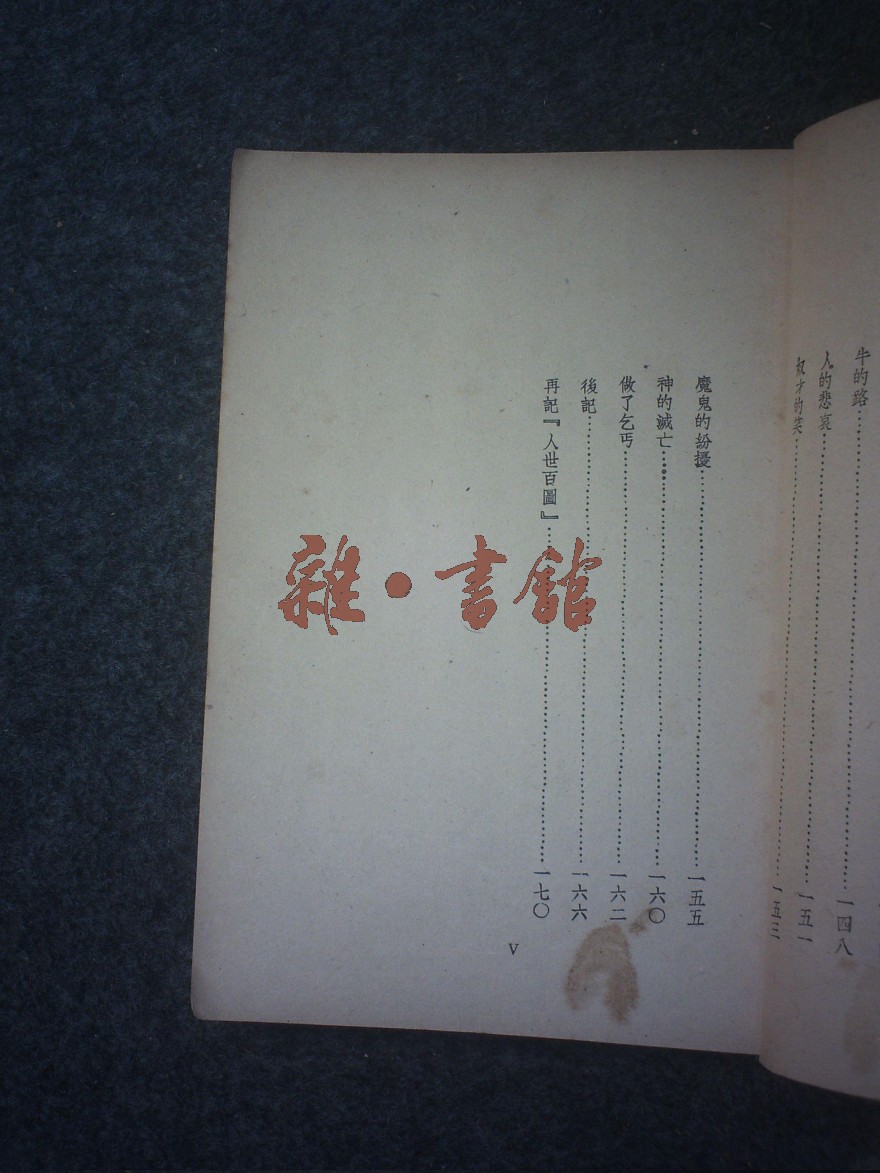 牛的路……一四八
人的悲哀……一五一
奴才的笑……一五三
魔鬼的紛擾……一五五
神的滅亡……一六〇
做了乞丐……一六二
後記……一六六
再記『人世百圖』……一七〇
V
雜•書館